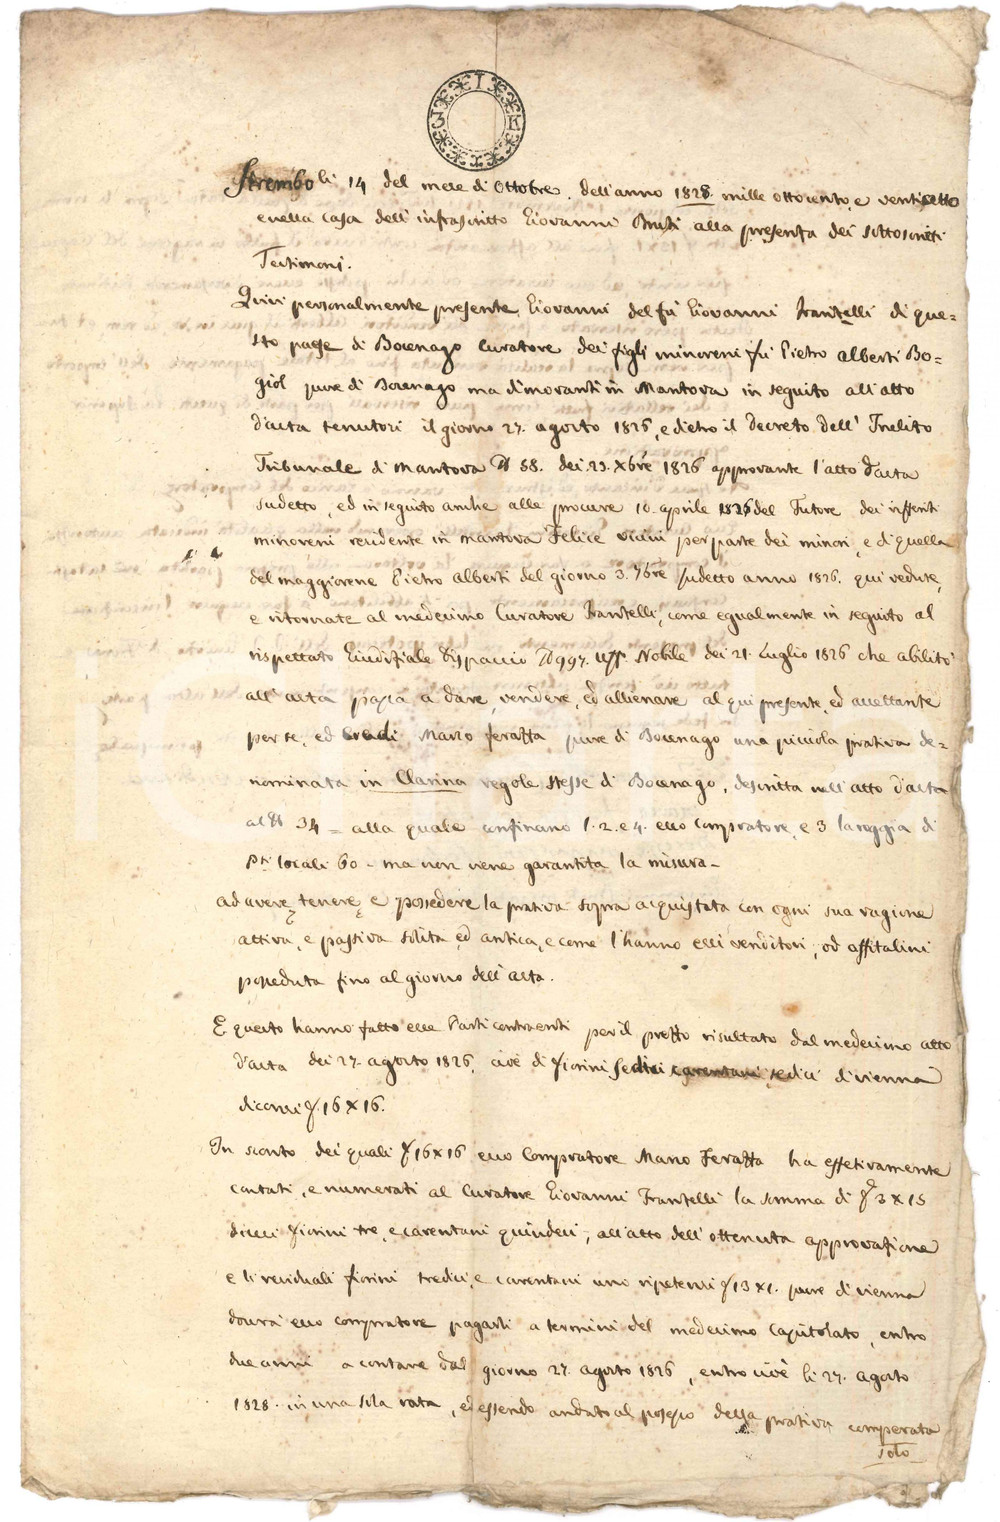 3 I K
Strembo li 14 del mese di Ottobre dell'anno 1828. mille ottocento e ventisette
e nella casa dell'infrascritto Giovanni alla presenza dei sottoscritti
Testimoni.
Quivi personalmente presente Giovanni del fu Giovanni Frantelli di que=
sto paese di Bocenago Curatore dei figli minoreni fu Pietro Alberti Bo=
giol pure di Bocenago ma dimoranti in Mantova in seguito all'atto
d'asta tenutosi il giorno 27. agosto 1826, e dietro il Decreto dell'Inclito
Tribunale di Mantova N 58. dei 23. Xbre 1826 approvante l'atto d'asta
sudetto, ed in seguito anche alle procure 10. aprile 1826 del Tutore dei
minoreni residente in Mantova Felice per parte dei minori, e di quella
del maggiorene Pietro Alberti del giorno 3. 7bre sudetto anno 1826. qui vedute,
e ritornate al medesimo Curatore Frantelli, come egualmente in seguito al
rispettato Giudiziale dispaccio N 997. Nobile dei 21. Luglio 1826 che abilitò
all'asta a dare, vendere, ed allienare al qui presente, ed accettante
per se, ed eredi Marzo Ferazza pure di Bocenago una picciola prativa de=
nominata in Clarina regole stesse di Bocenago, descritta nell'atto d'asta
al N 34 = alla quale confinano 1. 2. e 4. esso Compratore, e 3 la roggia di
Pti locali 60 - ma non viene garantita la misura -
ad avere, tenere, e possedere la prativa sopra acquistata con ogni sua ragione
attiva, e passiva solita ed antica, e come l'hanno essi venditori, od affitalini
posseduta fino al giorno dell'asta.
E questo hanno fatto esse Parti contraenti per il prezzo risultato dal medesimo atto
d'asta dei 27. agosto 1826, cioè di fiorini sedici carentani sedici di vienna
diconsi f. 16 X 16.
In sconto dei quali f 16 X 16 esso Compratore Marzo Ferazza ha effetivamente
contati, e numerati al Curatore Giovanni Frantelli la somma di f 3 X 15
dicesi fiorini tre, e carentani quindeci, all'atto dell'ottenuta approvazione
e li residuali fiorini tredici, e carentani uno ripetensi f 13 X 1. pure di vienna
dovrà esso compratore pagarli a termini del medesimo Capitolato, entro
due anni a contare dal giorno 27. agosto 1826, entro cioè li 27. agosto
1828. in una sola rata, ed essendo andato al possesso della prativa comperata
solo